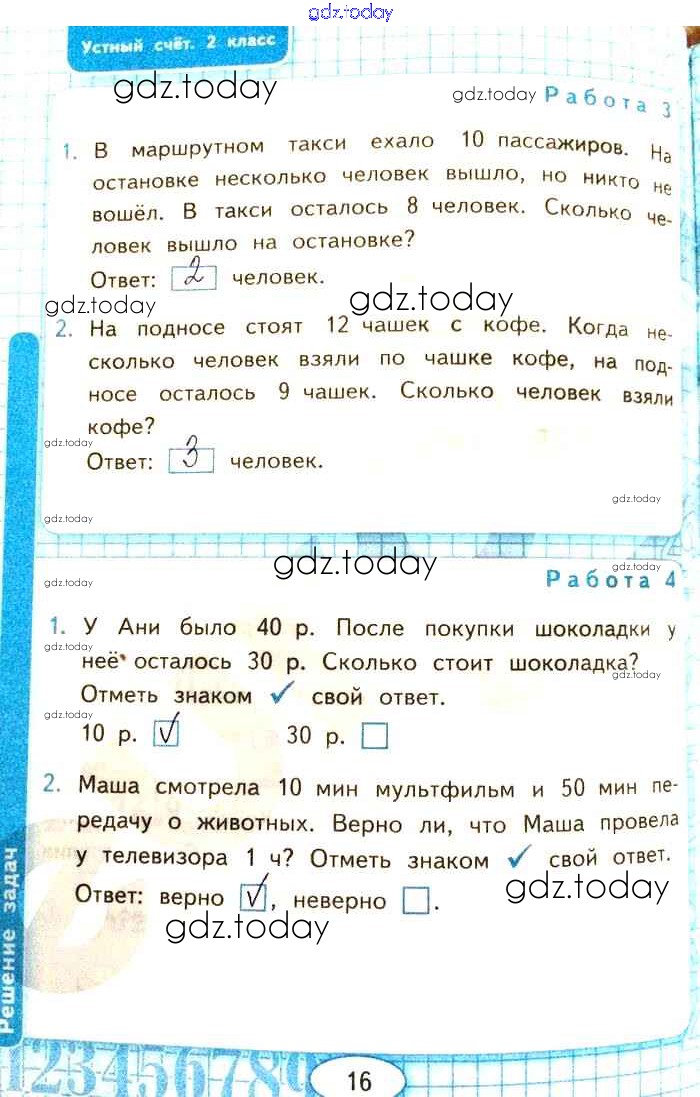 gdz.today
Устный счёт. 2 класс
gdz.today
gdz.today Работа 3
1. В маршрутном такси ехало 10 пассажиров. На
остановке несколько человек вышло, но никто не
вошёл. В такси осталось 8 человек. Сколько че-
ловек вышло на остановке?
Ответ: 2 человек.
gdz.today gdz.today
2. На подносе стоят 12 чашек с кофе. Когда не-
сколько человек взяли по чашке кофе, на под-
носе осталось 9 чашек. Сколько человек взяли
кофе?
gdz.today
Ответ: 3 человек.
gdz.today
gdz.today
gdz.today
gdz.today
gdz.today
Работа 4
1. У Ани было 40 р. После покупки шоколадки у
gdz.today
неё осталось 30 р. Сколько стоит шоколадка?
gdz.today
Отметь знаком ✓ свой ответ.
gdz.today
10 р. ✓ 30 р.
2. Маша смотрела 10 мин мультфильм и 50 мин пе-
редачу о животных. Верно ли, что Маша провела
у телевизора 1 ч? Отметь знаком ✓ свой ответ.
Ответ: верно ✓, неверно .
gdz.today
gdz.today
Решение задач
1234567890
16